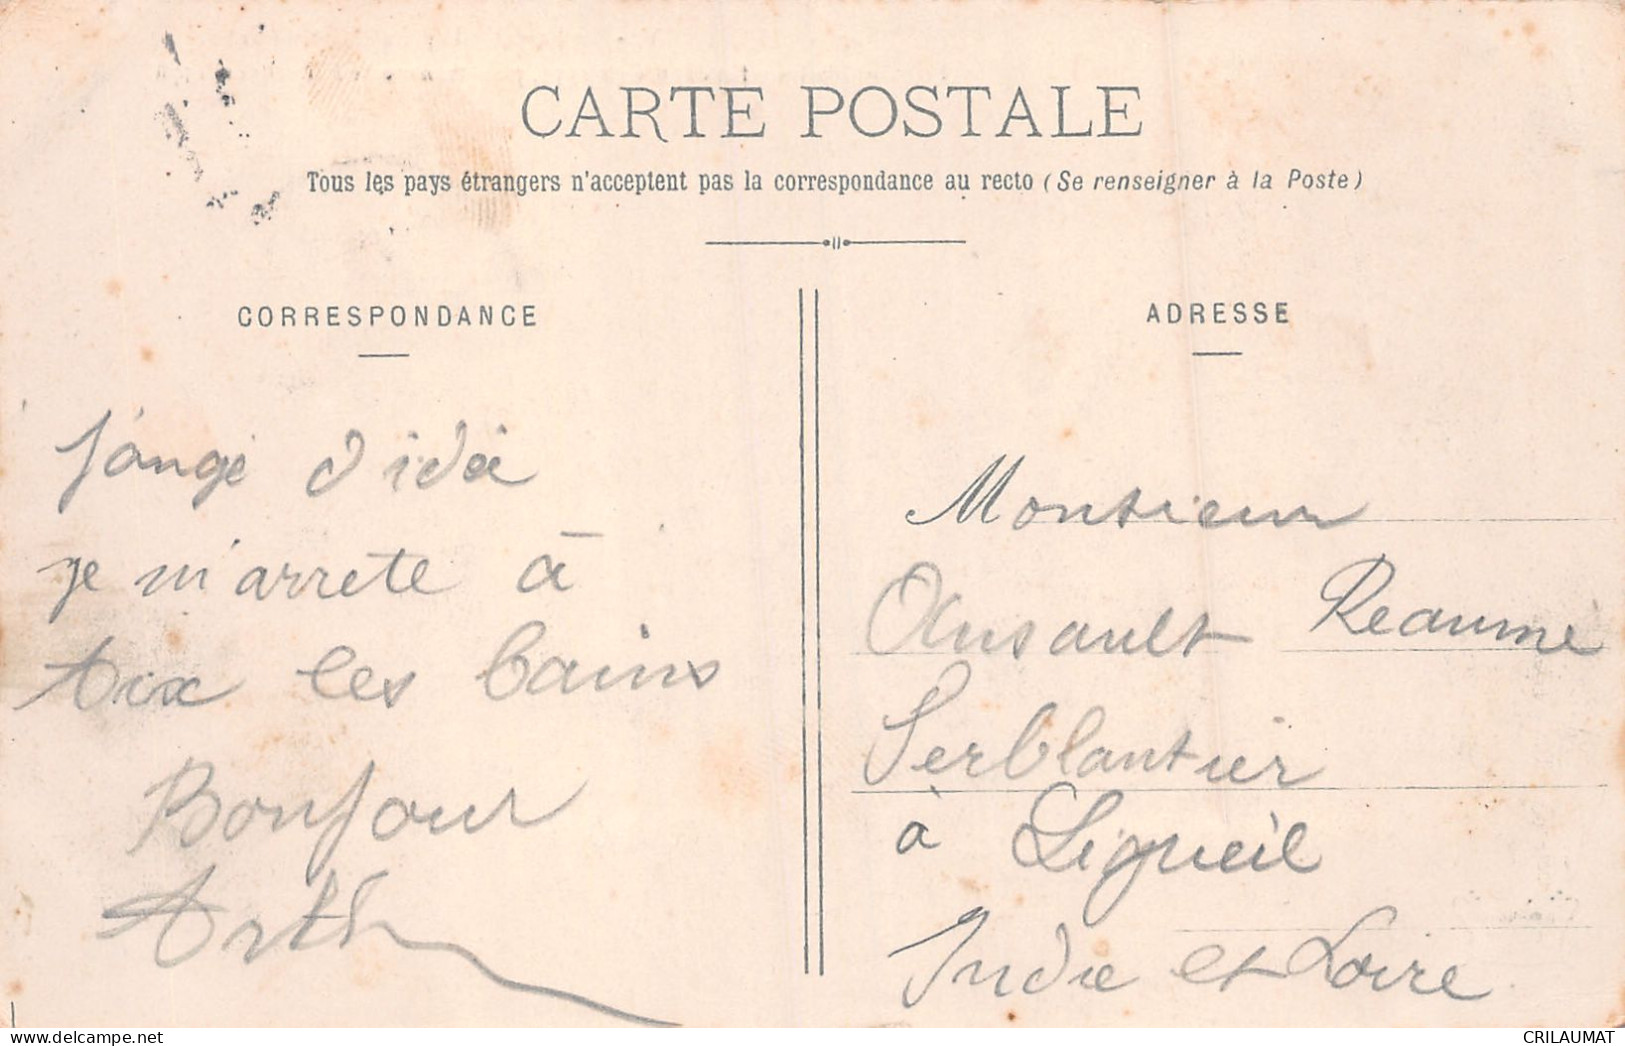 CARTE POSTALE
Tous les pays étrangers n'acceptent pas la correspondance au recto (Se renseigner à la Poste)
CORRESPONDANCE
j'ange d'idé
je m'arrete à
Aix les bains
Bonjour
Arth
ADRESSE
Monsieur
Ansault Reaumé
Ferblantier
à Ligueil
Indre et Loire
CRILAUMAT